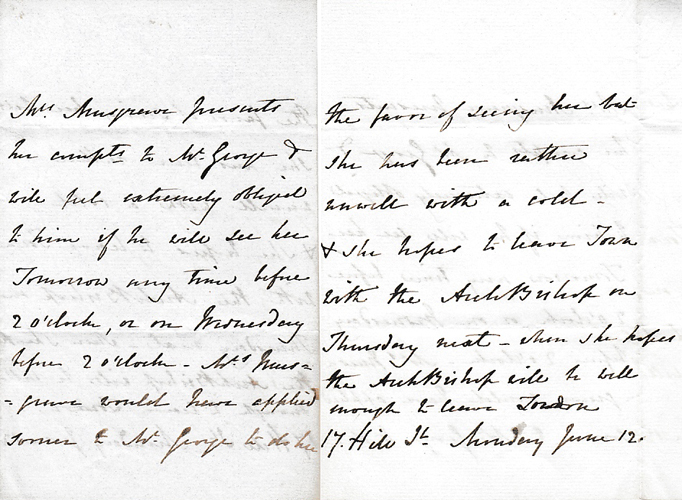 Mrs. Musgrave presents
her compts. to Mr. George &
will feel extremely obliged
to him if he will see her
Tomorrow any time before
2 o'clock, or on Wednesday
before 2 o'clock - Mrs. Mus=
=grave would have applied
sooner to Mr. George to do her
the favor of seeing her but
she has been rather
unwell with a cold -
& she hopes to leave Town
with the ArchBishop on
Thursday next - when she hopes
the ArchBishop will be well
enough to leave London
17. Hill St. Monday June 12.